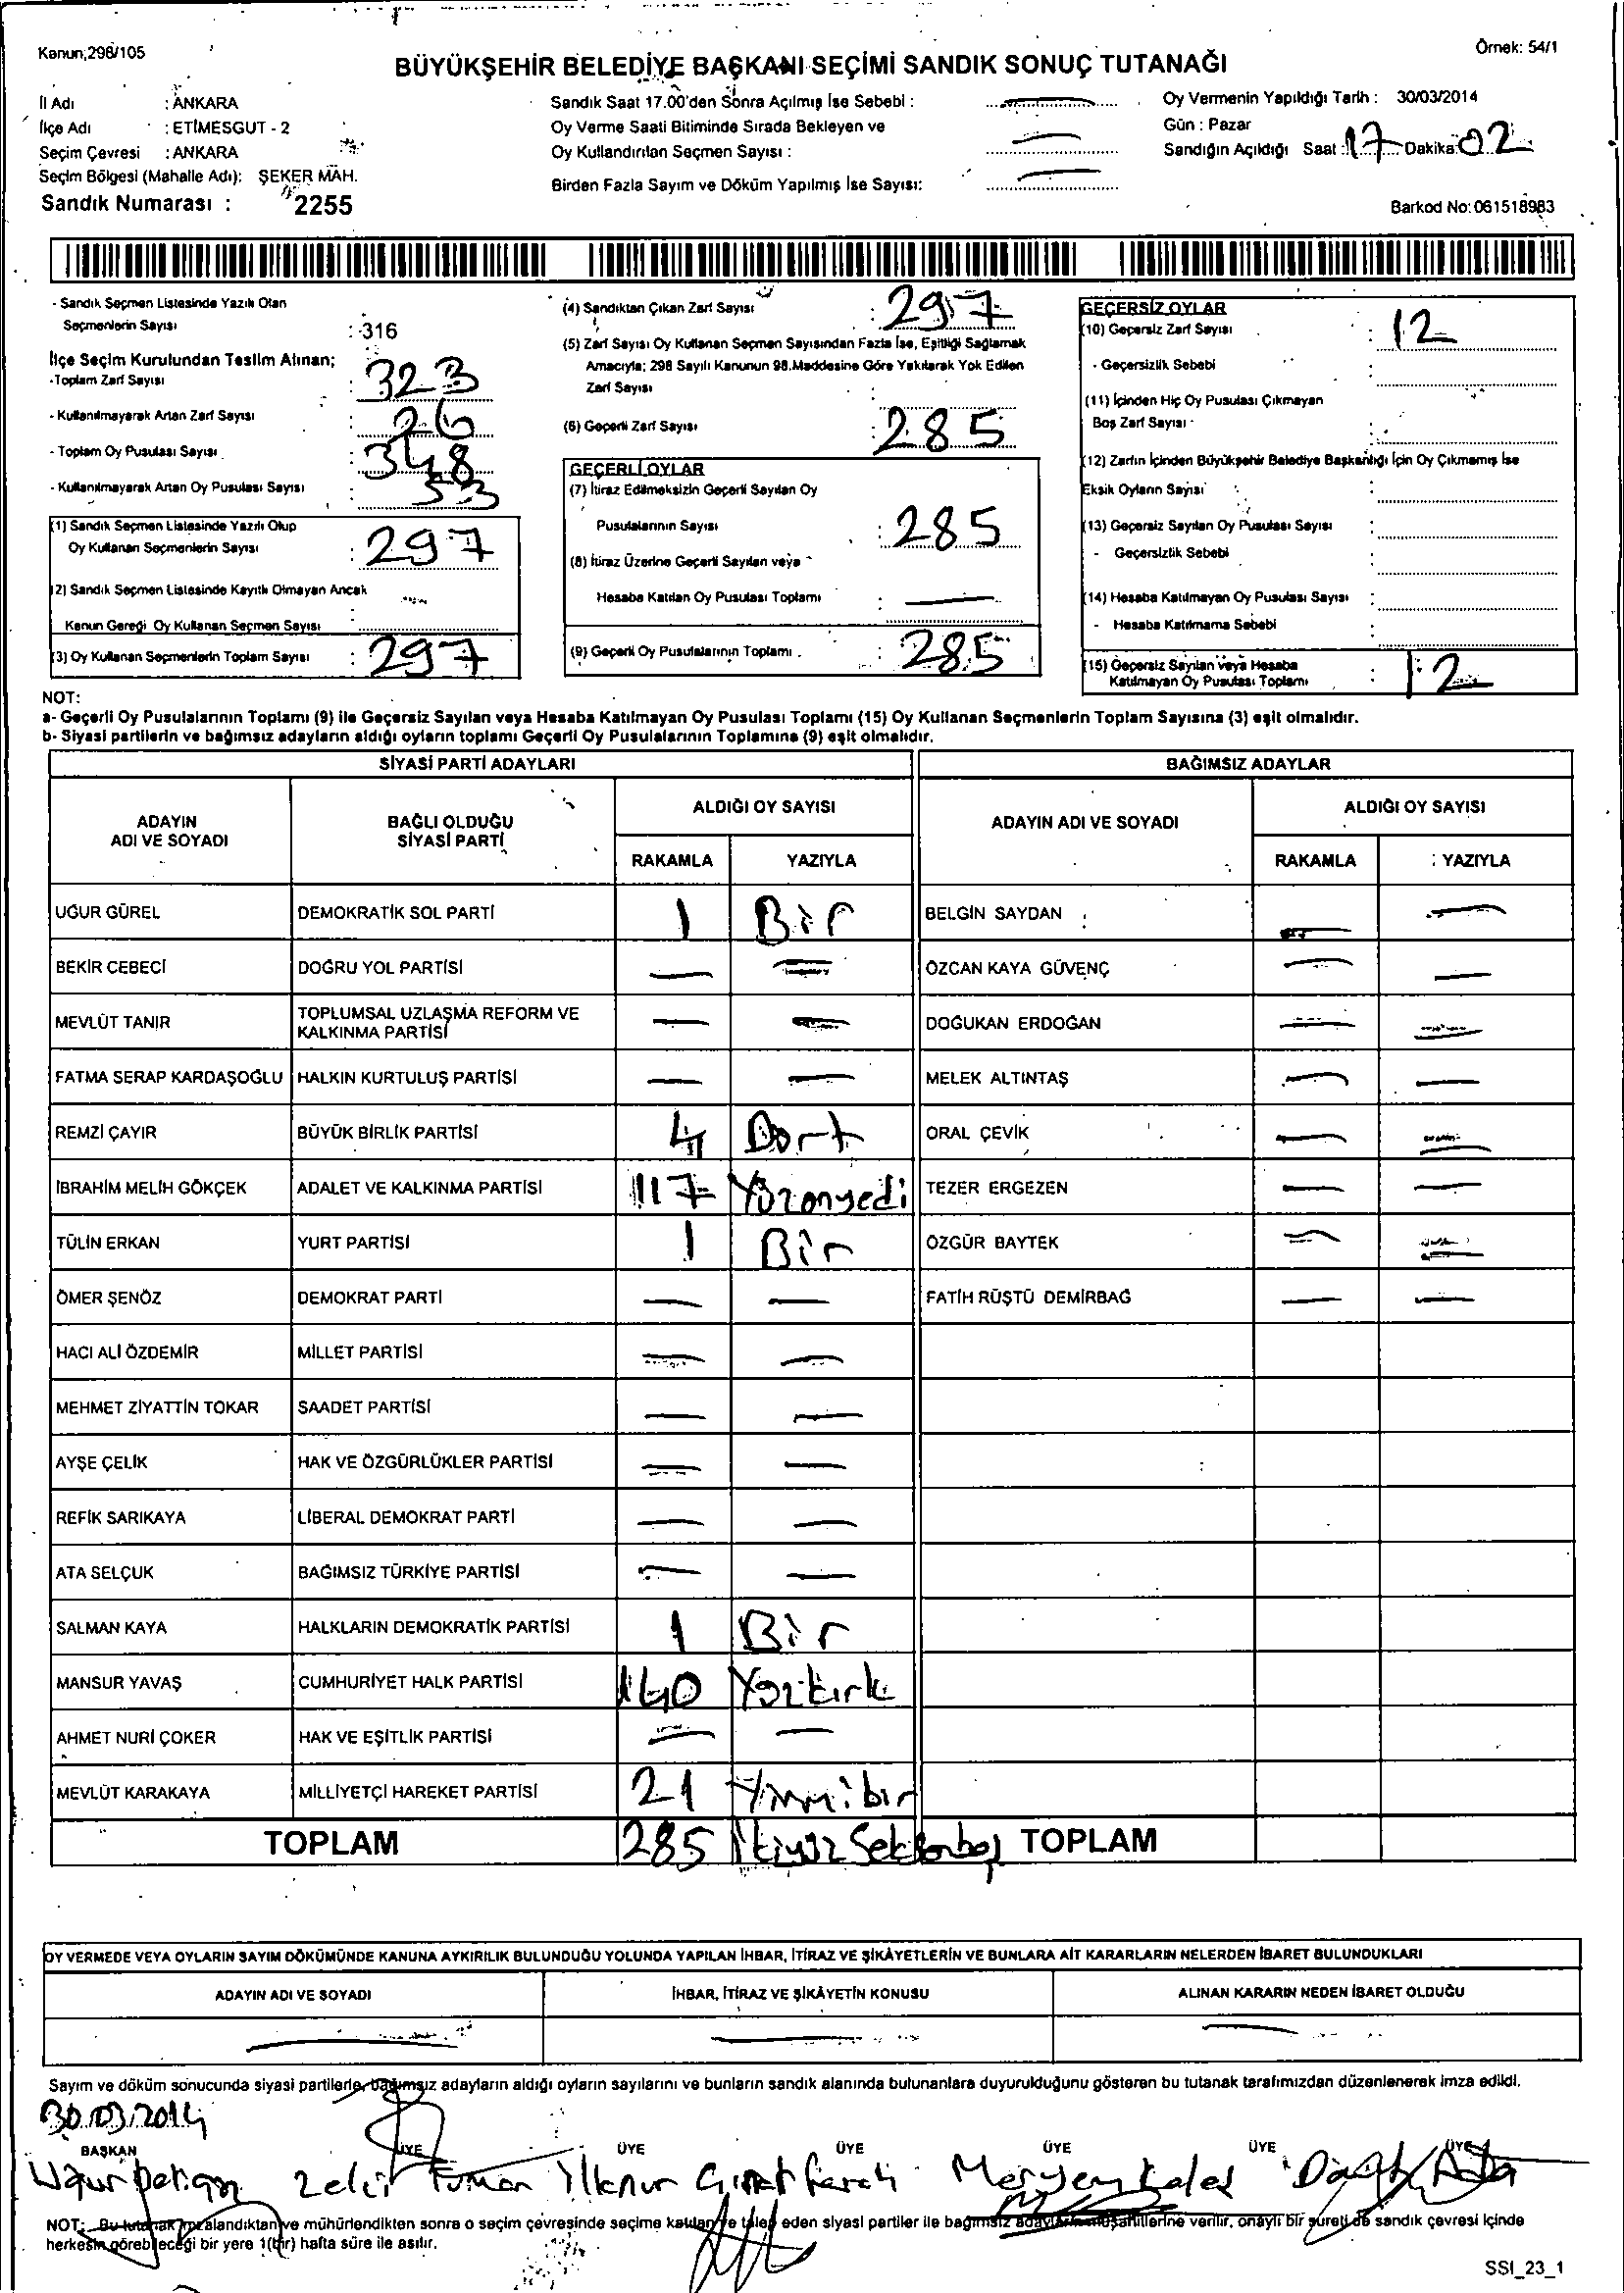 Kanun;298/105
Örnek: 54/1
BÜYÜKŞEHİR BELEDİYE BAŞKANI SEÇİMİ SANDIK SONUÇ TUTANAĞI
İl Adı : ANKARA
İlçe Adı : ETİMESGUT - 2
Seçim Çevresi : ANKARA
Seçim Bölgesi (Mahalle Adı): ŞEKER MAH.
Sandık Numarası : 2255
Sandık Saat 17.00'den Sonra Açılmış İse Sebebi :
Oy Verme Saati Bitiminde Sırada Bekleyen ve
Oy Kullandırılan Seçmen Sayısı :
Birden Fazla Sayım ve Döküm Yapılmış İse Sayısı:
Oy Vermenin Yapıldığı Tarih : 30/03/2014
Gün : Pazar
Sandığın Açıldığı Saat : 17 Dakika: 02
Barkod No: 061518983
- Sandık Seçmen Listesinde Yazılı Olan
Seçmenlerin Sayısı : 316
İlçe Seçim Kurulundan Teslim Alınan;
-Toplam Zarf Sayısı : 323
- Kullanılmayarak Artan Zarf Sayısı : 26
- Toplam Oy Pusulası Sayısı : 348
- Kullanılmayarak Artan Oy Pusulası Sayısı : 53
(1) Sandık Seçmen Listesinde Yazılı Olup
Oy Kullanan Seçmenlerin Sayısı : 297
(2) Sandık Seçmen Listesinde Kayıtlı Olmayan Ancak
Kanun Gereği Oy Kullanan Seçmen Sayısı :
(3) Oy Kullanan Seçmenlerin Toplam Sayısı : 297
(4) Sandıktan Çıkan Zarf Sayısı : 297
(5) Zarf Sayısı Oy Kullanan Seçmen Sayısından Fazla İse, Eşitliği Sağlamak
Amacıyla; 298 Sayılı Kanunun 98.Maddesine Göre Yakılarak Yok Edilen
Zarf Sayısı :
(6) Geçerli Zarf Sayısı : 285
GEÇERLİ OYLAR
(7) İtiraz Edilmeksizin Geçerli Sayılan Oy
Pusulalarının Sayısı : 285
(8) İtiraz Üzerine Geçerli Sayılan veya
Hesaba Katılan Oy Pusulası Toplamı :
(9) Geçerli Oy Pusulalarının Toplamı : 285
GEÇERSİZ OYLAR
(10) Geçersiz Zarf Sayısı : 12
- Geçersizlik Sebebi
(11) İçinden Hiç Oy Pusulası Çıkmayan
Boş Zarf Sayısı :
(12) Zarfın İçinden Büyükşehir Belediye Başkanlığı İçin Oy Çıkmamış İse
Eksik Oyların Sayısı :
(13) Geçersiz Sayılan Oy Pusulası Sayısı :
- Geçersizlik Sebebi
(14) Hesaba Katılmayan Oy Pusulası Sayısı :
- Hesaba Katılmama Sebebi :
(15) Geçersiz Sayılan veya Hesaba
Katılmayan Oy Pusulası Toplamı : 12
NOT:
a- Geçerli Oy Pusulalarının Toplamı (9) ile Geçersiz Sayılan veya Hesaba Katılmayan Oy Pusulası Toplamı (15) Oy Kullanan Seçmenlerin Toplam Sayısına (3) eşit olmalıdır.
b- Siyasi partilerin ve bağımsız adayların aldığı oyların toplamı Geçerli Oy Pusulalarının Toplamına (9) eşit olmalıdır.
SİYASİ PARTİ ADAYLARI BAĞIMSIZ ADAYLAR
ADAYIN ADI VE SOYADI BAĞLI OLDUĞU SİYASİ PARTİ ALDIĞI OY SAYISI ADAYIN ADI VE SOYADI ALDIĞI OY SAYISI
RAKAMLA YAZIYLA RAKAMLA YAZIYLA
UĞUR GÜREL DEMOKRATİK SOL PARTİ 1 Bir BELGİN SAYDAN
BEKİR CEBECİ DOĞRU YOL PARTİSİ ÖZCAN KAYA GÜVENÇ
MEVLÜT TANIR TOPLUMSAL UZLAŞMA REFORM VE KALKINMA PARTİSİ DOĞUKAN ERDOĞAN
FATMA SERAP KARDAŞOĞLU HALKIN KURTULUŞ PARTİSİ MELEK ALTINTAŞ
REMZİ ÇAYIR BÜYÜK BİRLİK PARTİSİ 4 Dört ORAL ÇEVİK
İBRAHİM MELİH GÖKÇEK ADALET VE KALKINMA PARTİSİ 117 Yüzonyedi TEZER ERGEZEN
TÜLİN ERKAN YURT PARTİSİ 1 Bir ÖZGÜR BAYTEK
ÖMER ŞENÖZ DEMOKRAT PARTİ FATİH RÜŞTÜ DEMİRBAĞ
HACI ALİ ÖZDEMİR MİLLET PARTİSİ
MEHMET ZİYATTİN TOKAR SAADET PARTİSİ
AYŞE ÇELİK HAK VE ÖZGÜRLÜKLER PARTİSİ
REFİK SARIKAYA LİBERAL DEMOKRAT PARTİ
ATA SELÇUK BAĞIMSIZ TÜRKİYE PARTİSİ
SALMAN KAYA HALKLARIN DEMOKRATİK PARTİSİ 1 Bir
MANSUR YAVAŞ CUMHURİYET HALK PARTİSİ 140 Yüzkırk
AHMET NURİ ÇOKER HAK VE EŞİTLİK PARTİSİ
MEVLÜT KARAKAYA MİLLİYETÇİ HAREKET PARTİSİ 21 Yirmibir
TOPLAM 285 İkiyüz Seksenbeş TOPLAM
OY VERMEDE VEYA OYLARIN SAYIM DÖKÜMÜNDE KANUNA AYKIRILIK BULUNDUĞU YOLUNDA YAPILAN İHBAR, İTİRAZ VE ŞİKÂYETLERİN VE BUNLARA AİT KARARLARIN NELERDEN İBARET BULUNDUKLARI
ADAYIN ADI VE SOYADI İHBAR, İTİRAZ VE ŞİKÂYETİN KONUSU ALINAN KARARIN NEDEN İBARET OLDUĞU
Sayım ve döküm sonucunda siyasi partilerle, bağımsız adayların aldığı oyların sayılarını ve bunların sandık alanında bulunanlara duyurulduğunu gösteren bu tutanak tarafımızdan düzenlenerek imza edildi.
30.03.2014
BAŞKAN ÜYE ÜYE ÜYE ÜYE ÜYE ÜYE
Uğur Zeki İlknur Meryem
NOT: Bu tutanak imzalandıktan ve mühürlendikten sonra o seçim çevresinde seçime katılan ve talep eden siyasi partiler ile bağımsız adayların müşahitlerine verilir, onaylı bir sureti de sandık çevresi içinde
herkesin görebileceği bir yere 1(bir) hafta süre ile asılır.
SSI_23_1